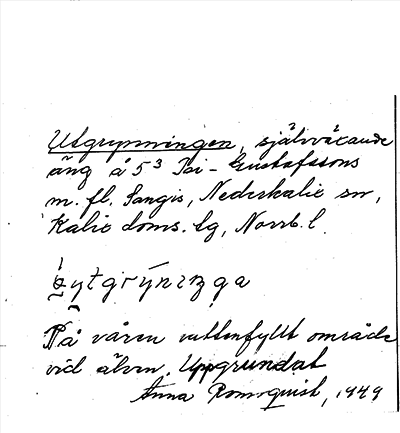 Utgrynningen, självväxande
äng å 5³ Pei-Gustafssons
m. fl. Sangis, Nederkalix sn,
Kalix doms. lg, Norrb. l.
På våren vattenfyllt område
vid älven. Uppgrundat
Anna Romqvist, 1949